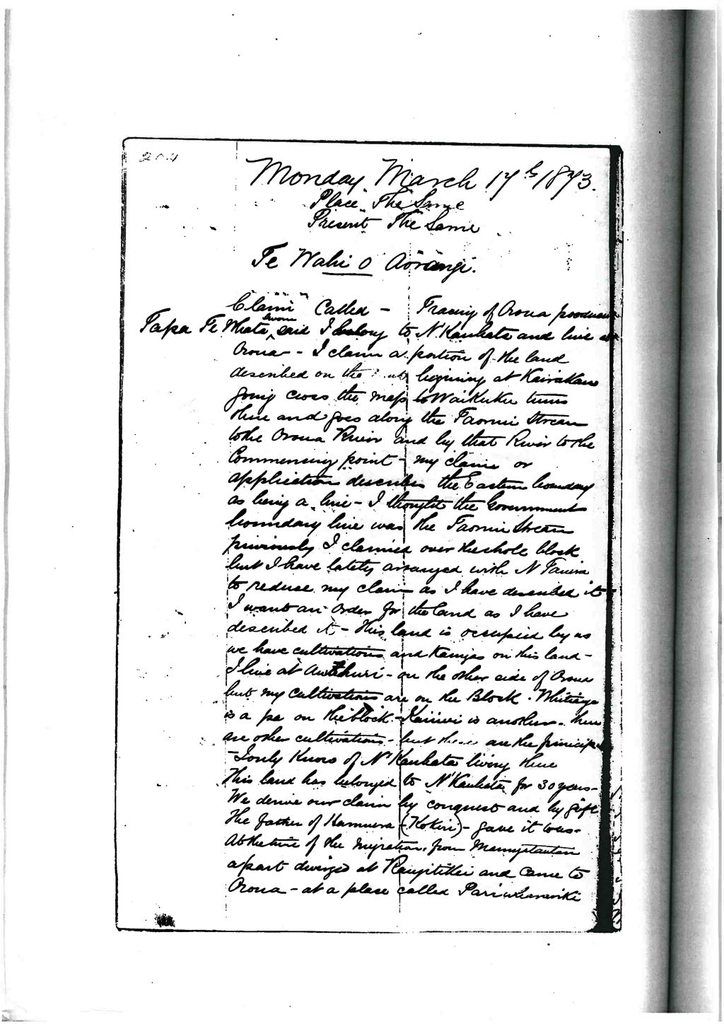 204
Monday March 17th 1873.
Place The Same
Present The Same
Te Wahi o Aorangi.
Claim Called - Tracing of Oroua produced
Tapa Te Whata sworn said I belong to N'Kauhata and live at
Oroua - I claim a portion of the land
described on the begining at Kairakau
going cross the map to Waikuku turns
then and goes along the Taonui Stream
to the Oroua River and by that River to the
Commencing point - my claim or
application describes the Eastern boundary
as being a line - I thought the Government
boundary line was the Taonui Stream
previously I claimed over the whole block
but I have lately arranged with N'Tauira
to reduce my claim as I have described it
I want an order for the land as I have
described it - this land is occupied by us
we have cultivations and kaingas on this land -
I live at Awahuri - on the other side of Oroua
but my cultivations are on the Block.
is a pa on the block - is another - there
are other cultivations but these are the principal
- I only know of N'Kauhata living there
This land has belonged to N'Kauhata for 30 years -
We derive our claim by conquest and by gift
The father of Kamuera (Kokiri) - gave it to us -
At the time of the migration from Maungatautari
a part diverged at Rangitikei and came to
Oroua - at a place called